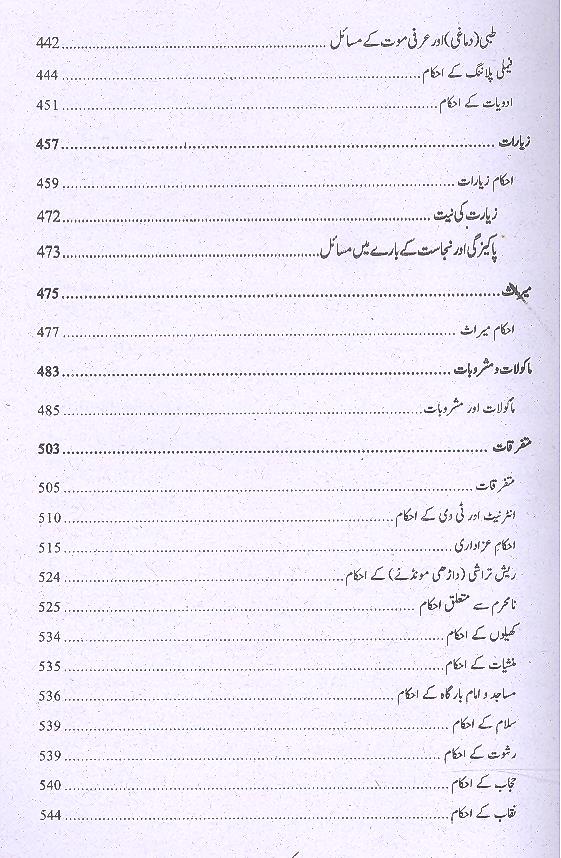 طبی (دماغی) اور عرفی موت کے مسائل ........ 442
فیملی پلاننگ کے احکام ........ 444
ادویات کے احکام ........ 451
زیارات ........ 457
احکام زیارات ........ 459
زیارت کی نیت ........ 472
پاکیزگی اور نجاست کے بارے میں مسائل ........ 473
میراث ........ 475
احکام میراث ........ 477
ماکولات و مشروبات ........ 483
ماکولات اور مشروبات ........ 485
متفرقات ........ 503
متفرقات ........ 505
انٹرنیٹ اور ٹی وی کے احکام ........ 510
احکام عزاداری ........ 515
ریش تراشی (داڑھی مونڈنے) کے احکام ........ 524
نامحرم سے متعلق احکام ........ 525
کھیلوں کے احکام ........ 534
منشیات کے احکام ........ 535
مساجد و امام بارگاہ کے احکام ........ 536
سلام کے احکام ........ 539
رشوت کے احکام ........ 539
حجاب کے احکام ........ 540
نقاب کے احکام ........ 544